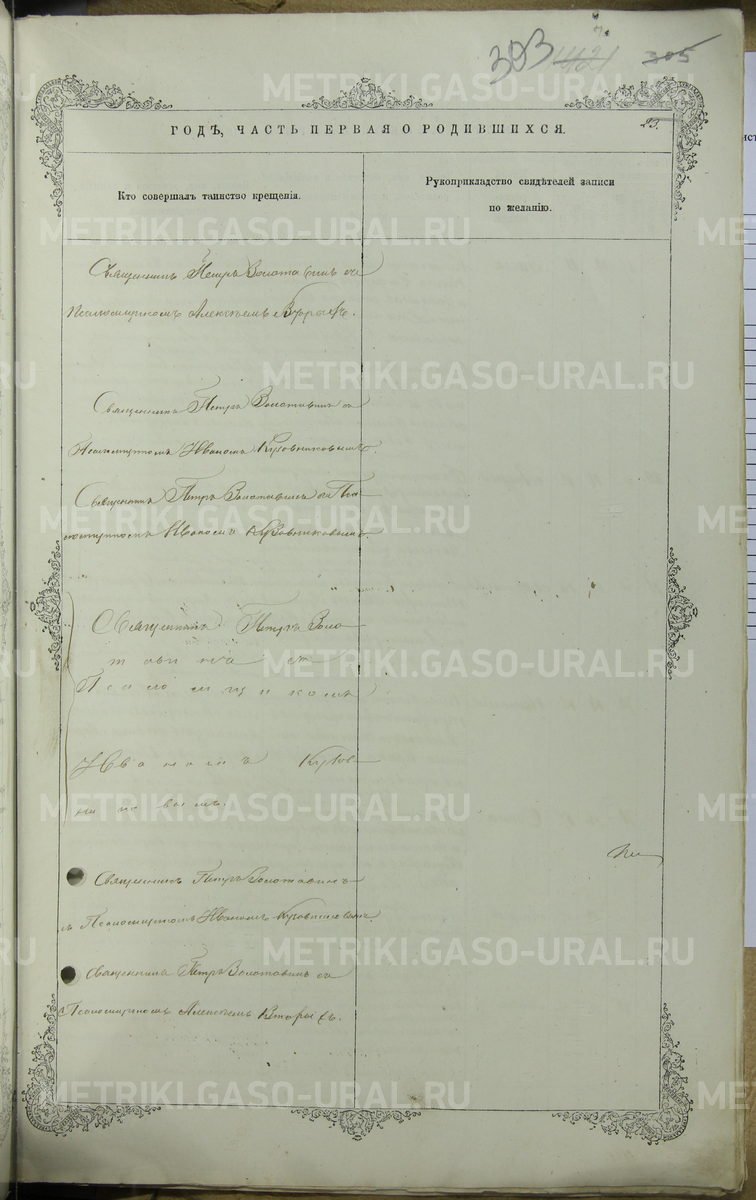 393 1421 305
23.
ГОДЪ, ЧАСТЬ ПЕРВАЯ О РОДИВШИХСЯ.
Кто совершалъ таинство крещенія.
Рукоприкладство свидѣтелей записи
по желанію.
Священникъ Петръ Золотавинъ съ
Псаломщикомъ Алексѣемъ Вторыхъ.
Священникъ Петръ Золотавинъ съ
Псаломщикомъ Иваномъ Кузовниковымъ.
Священникъ Петръ Золотавинъ съ Пса
ломщикомъ Иваномъ Кузовниковымъ.
Священникъ Петръ Золо
тавинъ съ
Псаломщикомъ
Иваномъ Кузов
никовымъ.
Священникъ Петръ Золотавинъ
съ Псаломщикомъ Иваномъ Кузовниковымъ.
Священникъ Петръ Золотавинъ съ
Псаломщикомъ Алексѣемъ Вторыхъ.
METRIKI.GASO-URAL.RU